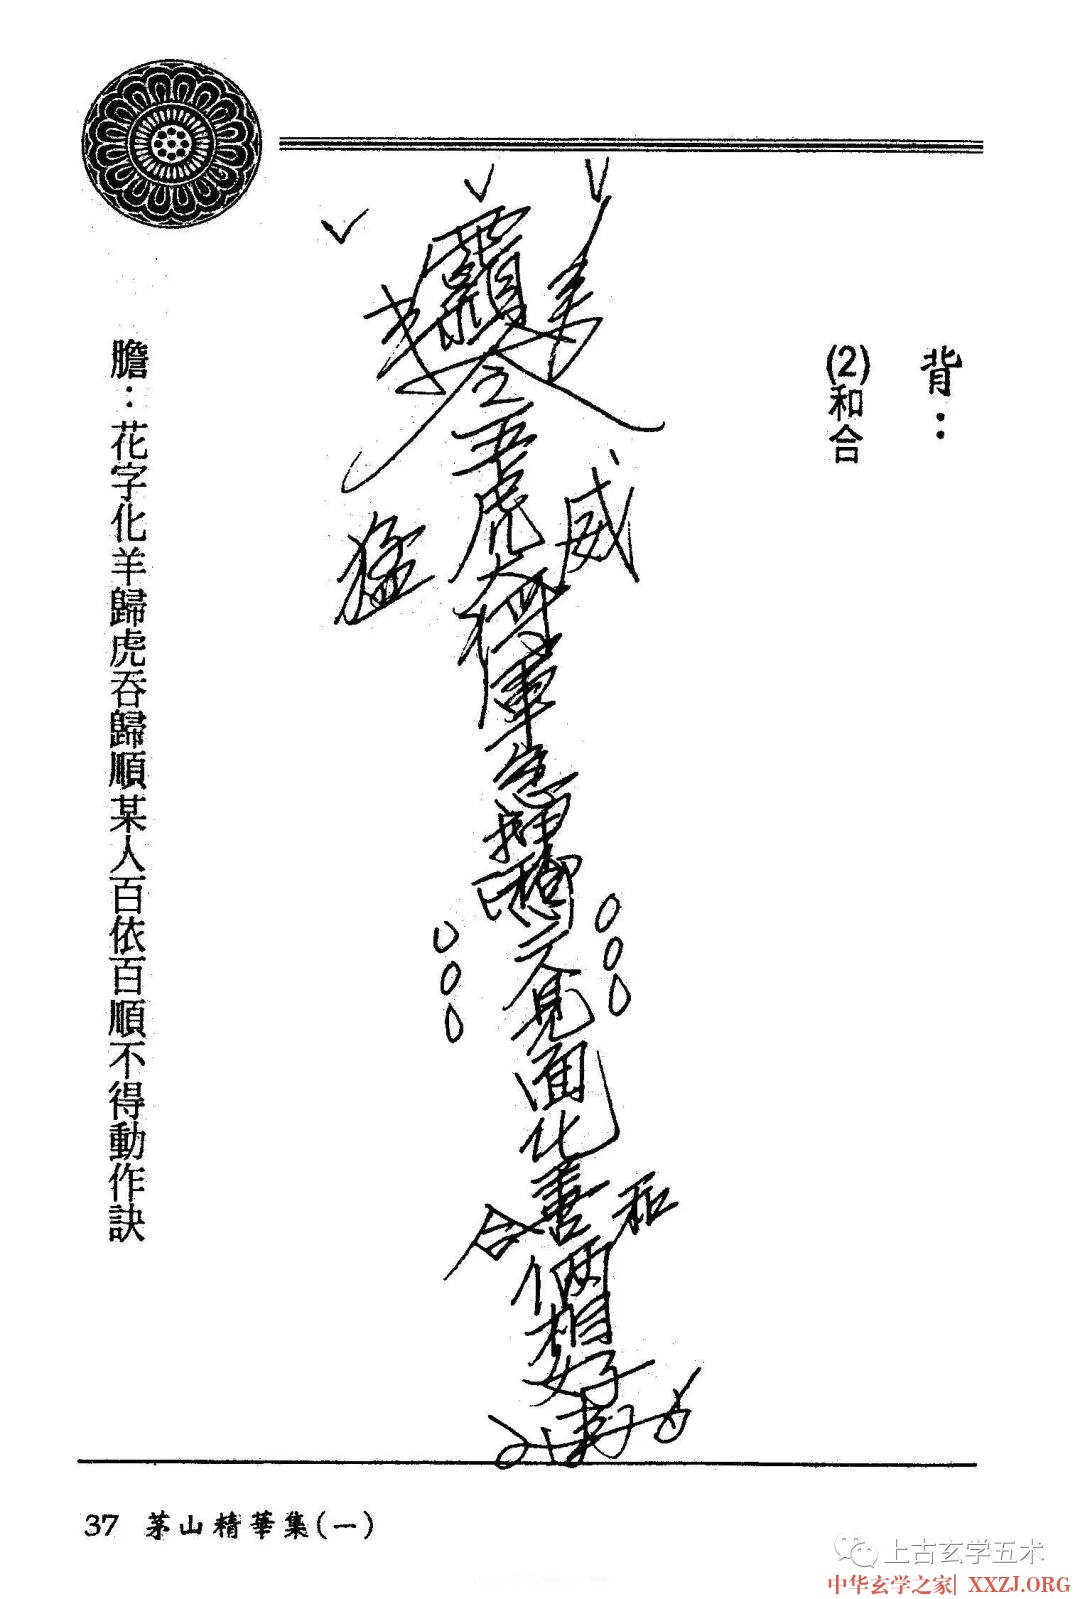 背：
(2)和合
令
五虎大將軍急
威
猛
見面化善
和
合
倆相好
膽：花字化羊歸虎吞歸順某人百依百順不得動作訣
37 茅山精華集(一)
上古玄学五术
中华玄学之家| XXZJ.ORG